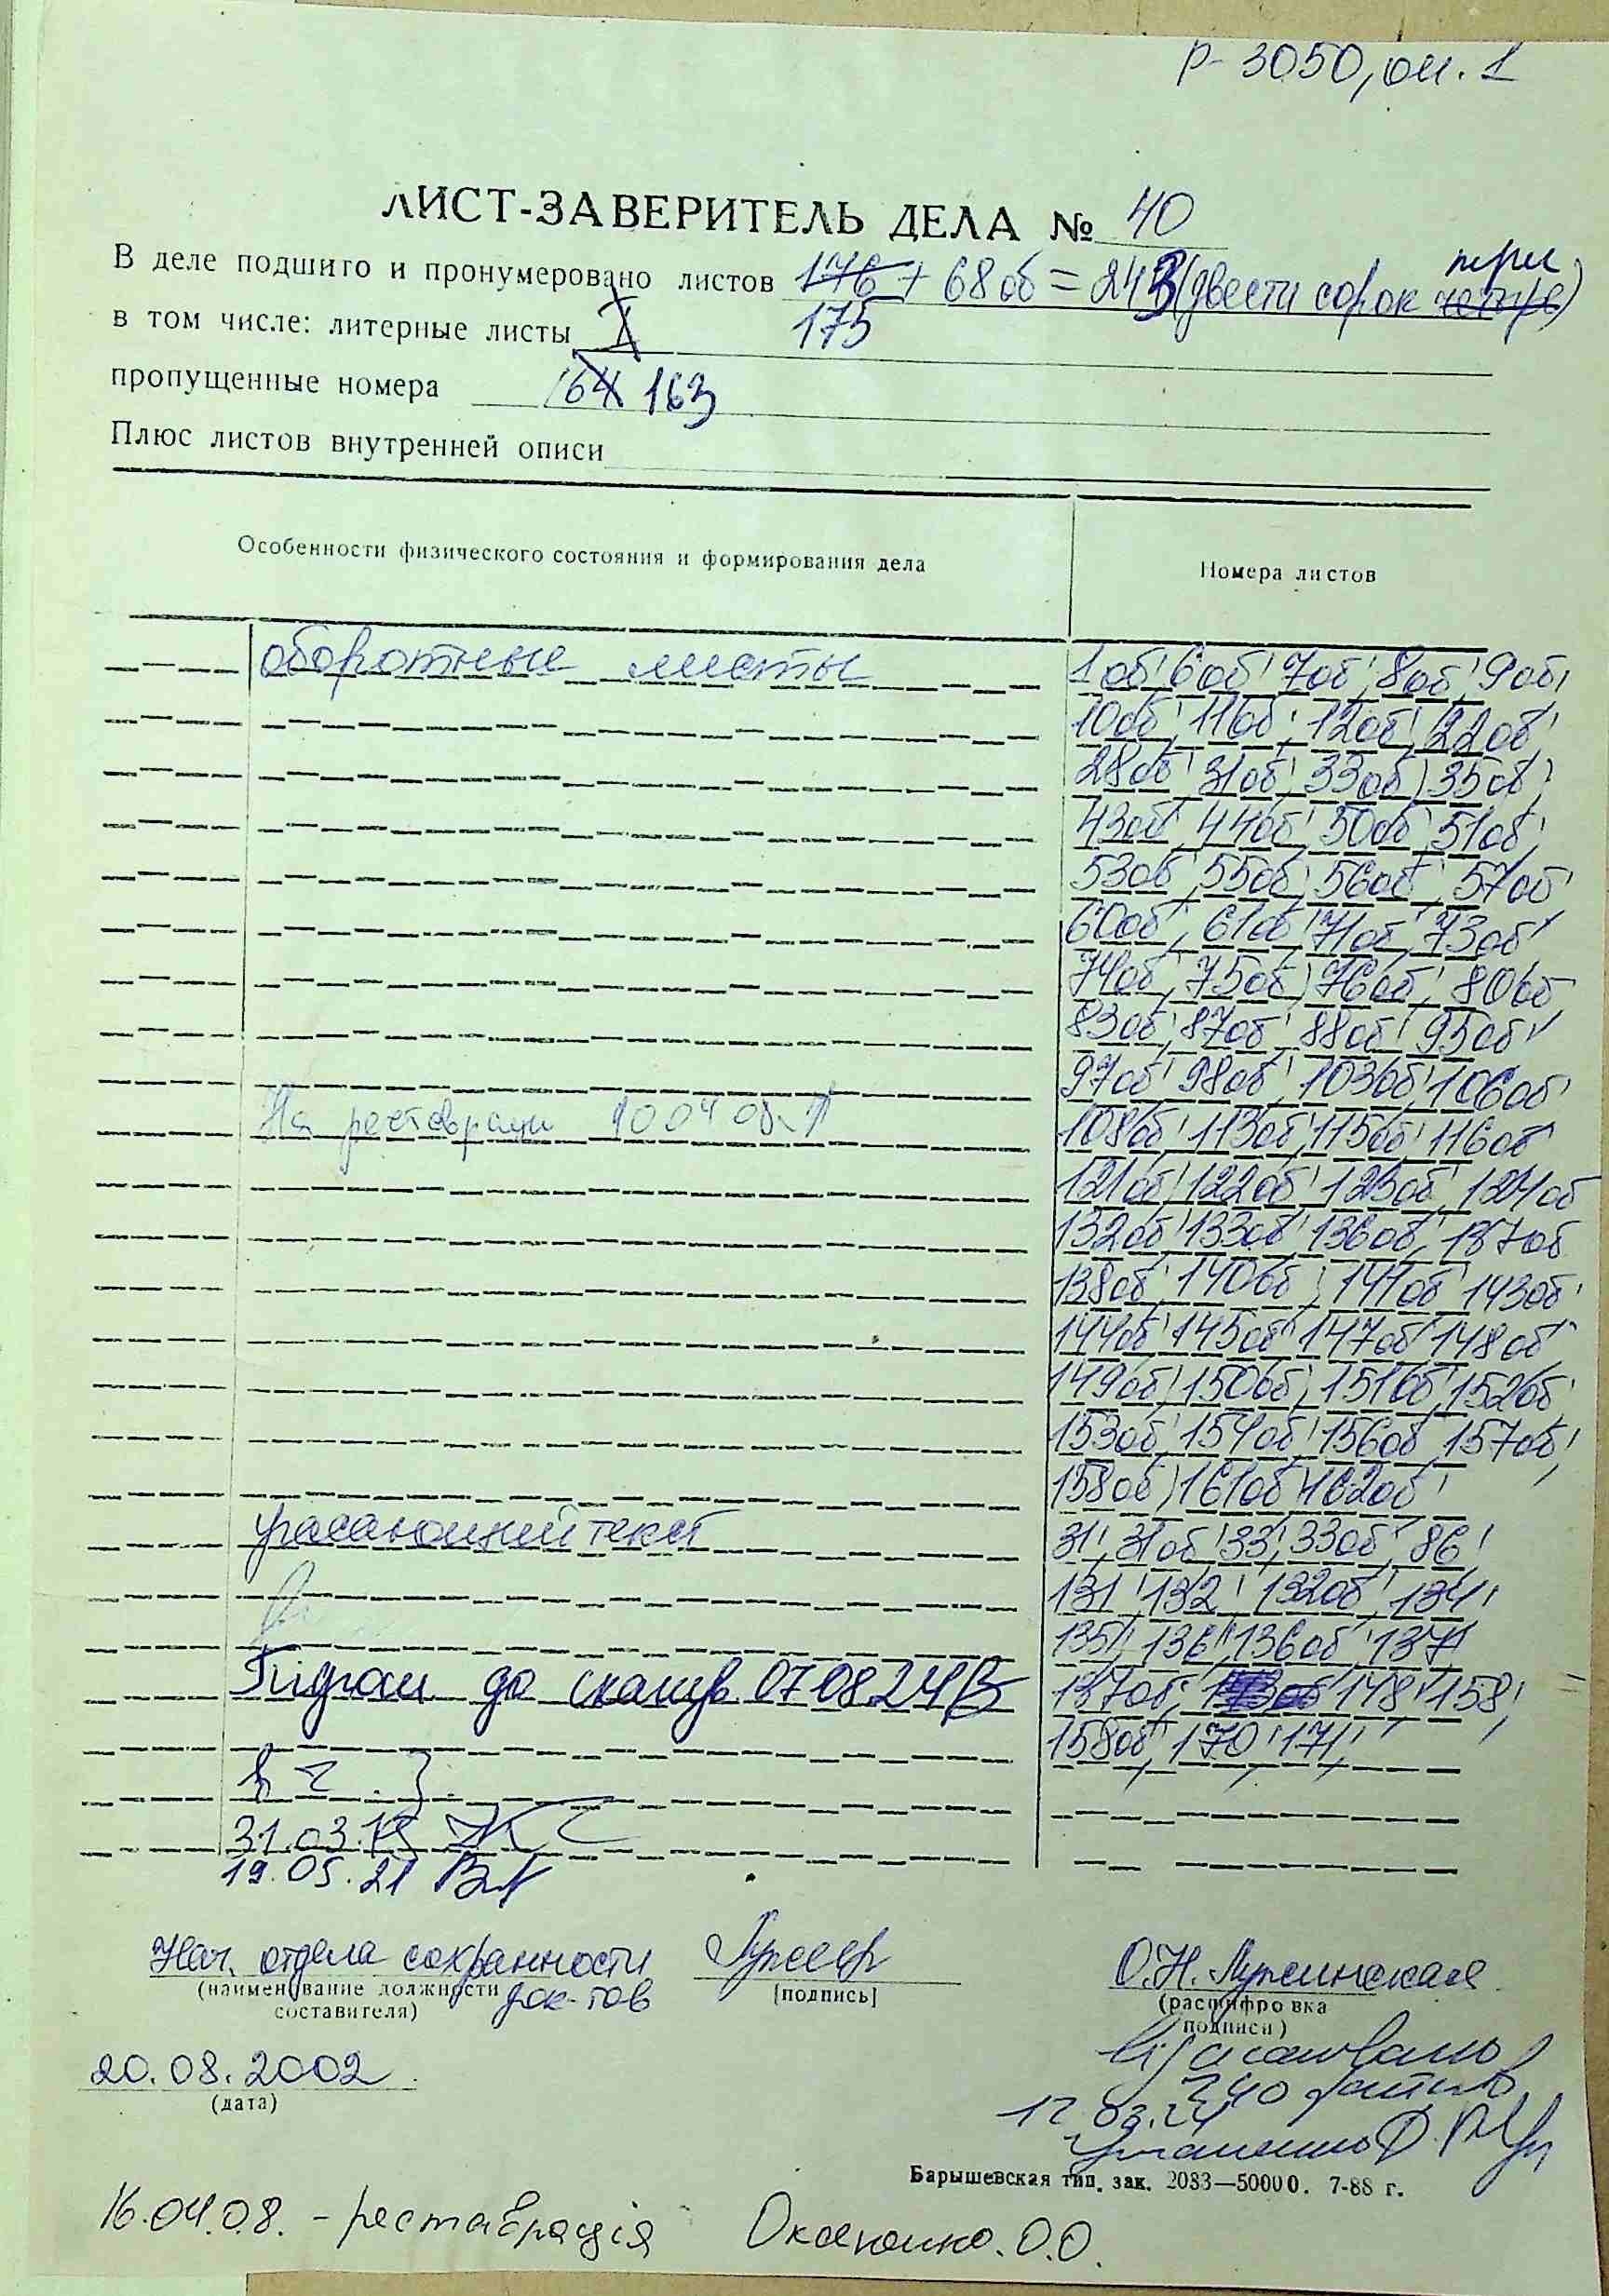 Р-3050, оп. 1
ЛИСТ-ЗАВЕРИТЕЛЬ ДЕЛА № 40
В деле подшиго и пронумеровано листов 176 + 68 об = 243 (двести сорок четыре) три
в том числе: литерные листы 175
пропущенные номера 164 163
Плюс листов внутренней описи
Особенности физического состояния и формирования дела
Номера листов
оборотные листы 1об, 6об, 7об, 8об, 9об,
10об, 11об, 12об, 22об,
28об, 31об, 33об, 35об,
43об, 44об, 50об, 51об,
53об, 55об, 56об, 57об,
60об, 61об, 71об, 73об,
74об, 75об, 76об, 80об
83об, 87об, 88об, 95об,
97об, 98об, 103об, 106об,
На реставрации 10 04 08
108об, 113об, 115об, 116об
121об, 122об, 123об, 124об
132об, 133об, 136об, 137об
138об, 140об, 141об, 143об,
144об, 145об, 147об, 148об
149об, 150об, 151об, 152об,
153об, 154об, 156об, 157об,
158об, 161об, 162об,
угасающий текст 31, 31об, 33, 33об, 86,
131, 132, 132об, 134,
135, 136, 136об, 137,
до сканув 07 08 24
137об, 148, 158,
158об, 170, 171,
31.03.15
19.05.21
Нач. отдела сохранности док-тов
О.Н. Лужинская
(наименование должности составителя)
[подпись]
(расшифровка подписи)
20.08.2002
(дата)
240
12.03.24
Барышевская тип. зак. 2033—50000. 7-88 г.
16.04.08. - реставрація Оксененко. О.О.